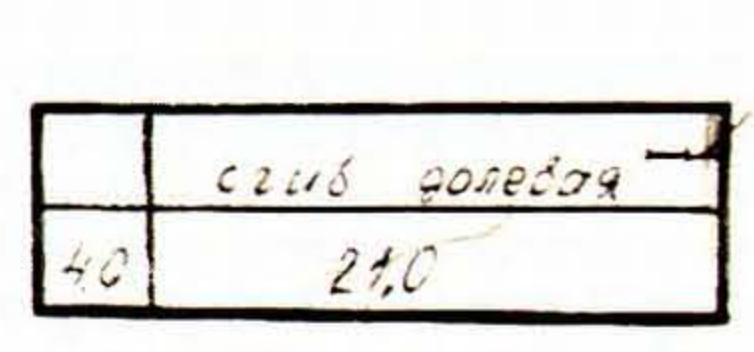 сгиб долевая
4,0 21,0